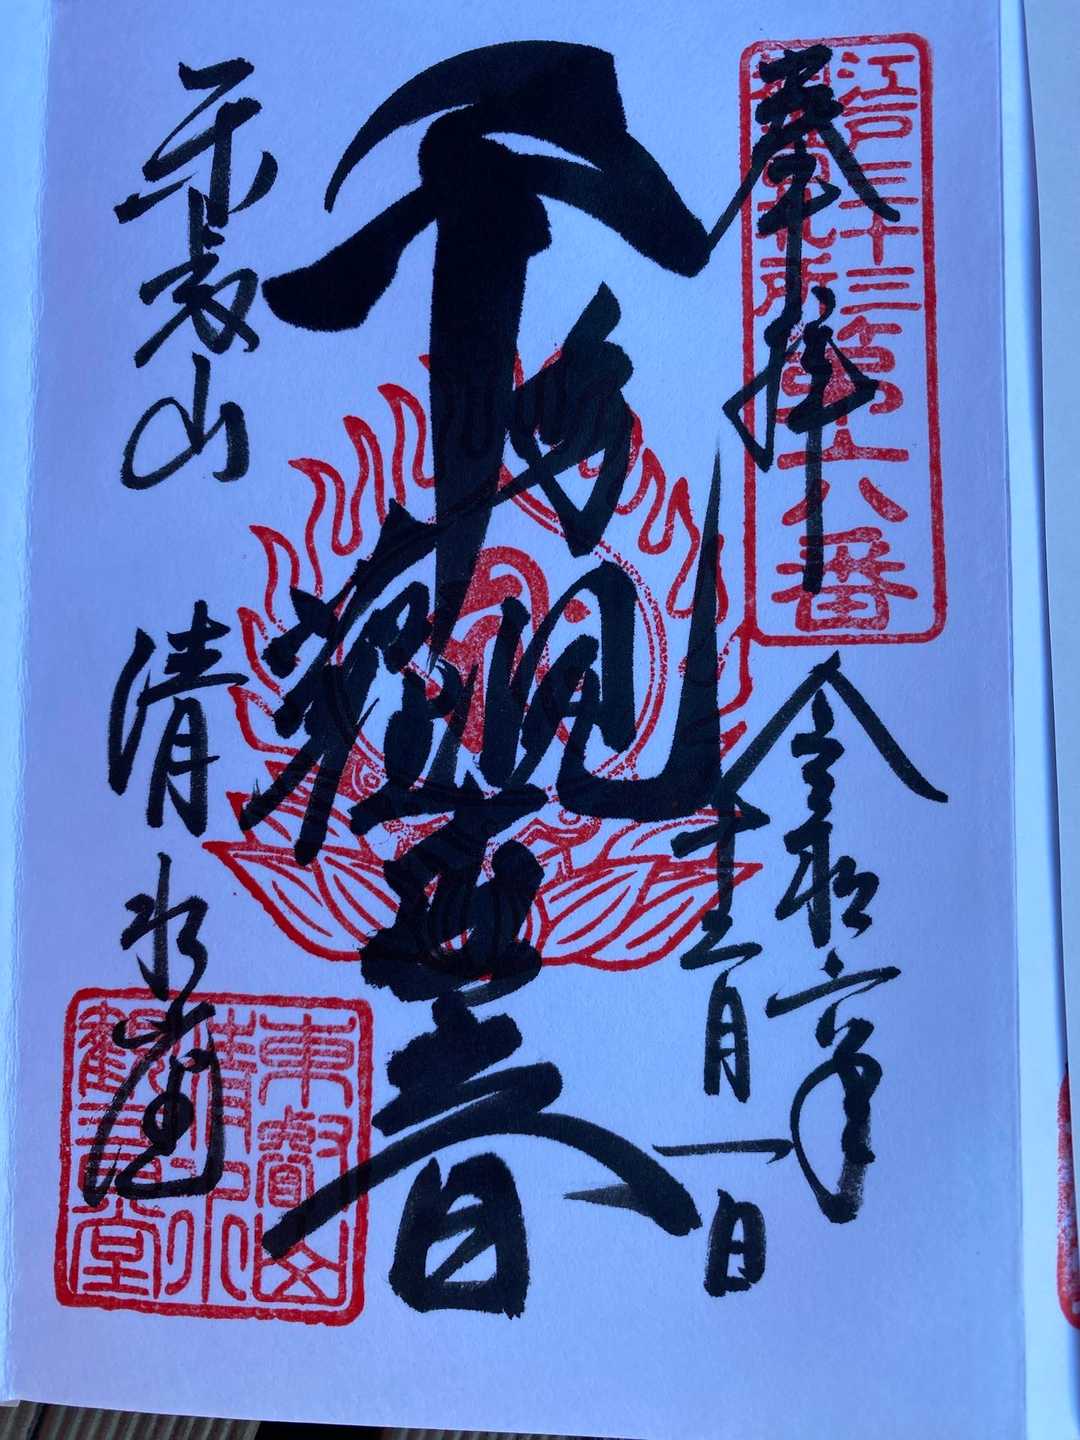 奉拝
江戸三十三
観音札所
第六番
令和六年
十二月一日
千手観世音
東叡山
清水堂
東叡山
清水
観音堂